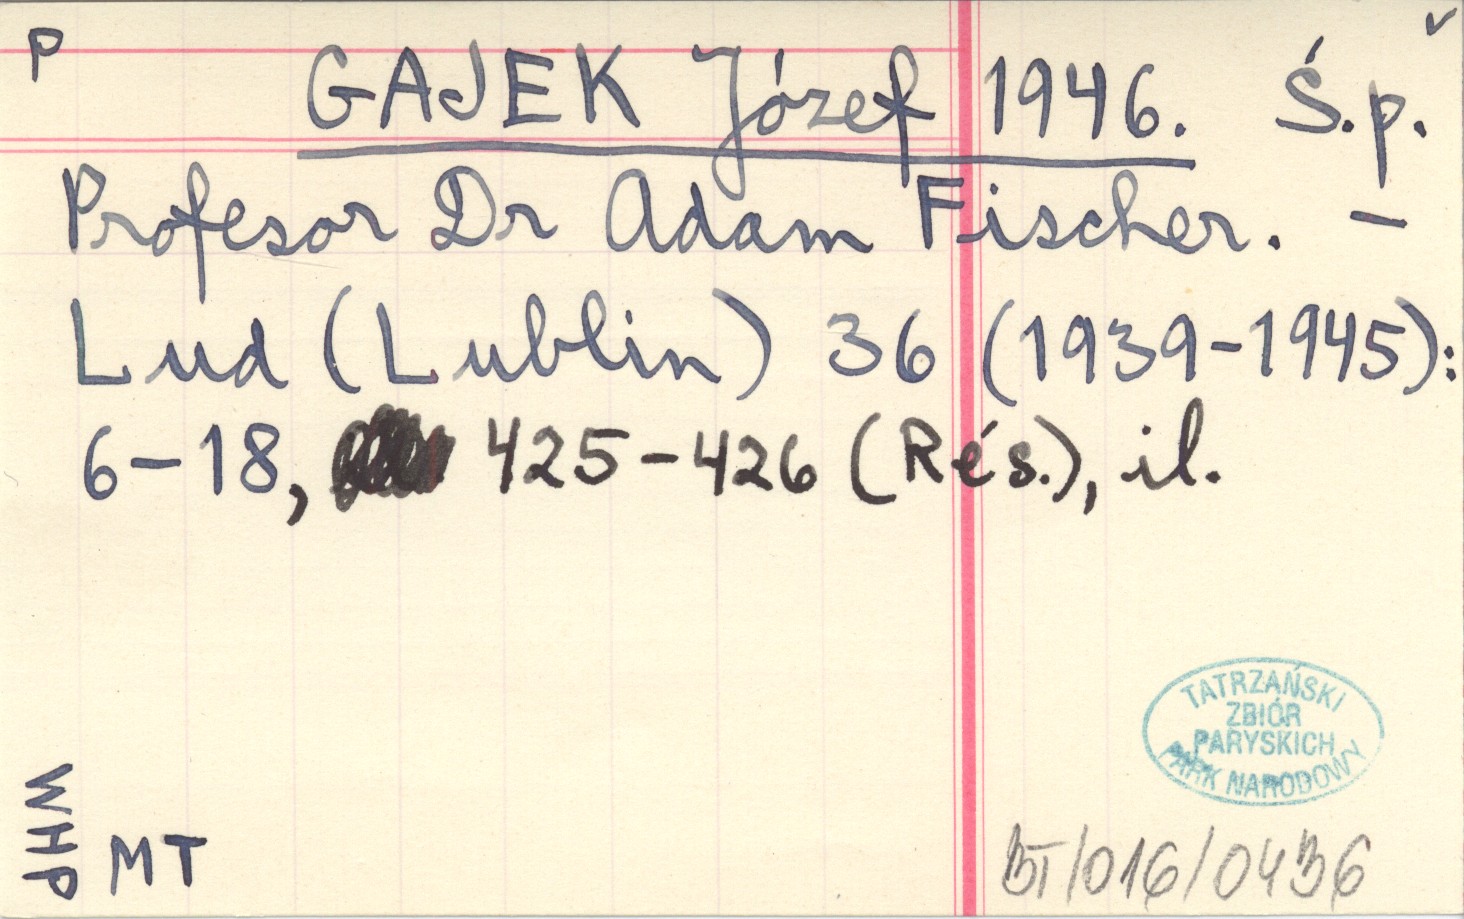 P
v
GAJEK Józef 1946. Ś.p.
Profesor Dr Adam Fischer. –
Lud (Lublin) 36 (1939-1945):
6–18, 425–426 (Rés.), il.
TATRZAŃSKI
ZBIÓR
PARYSKICH
PARK NARODOWY
WHP
MT
BT/016/0436